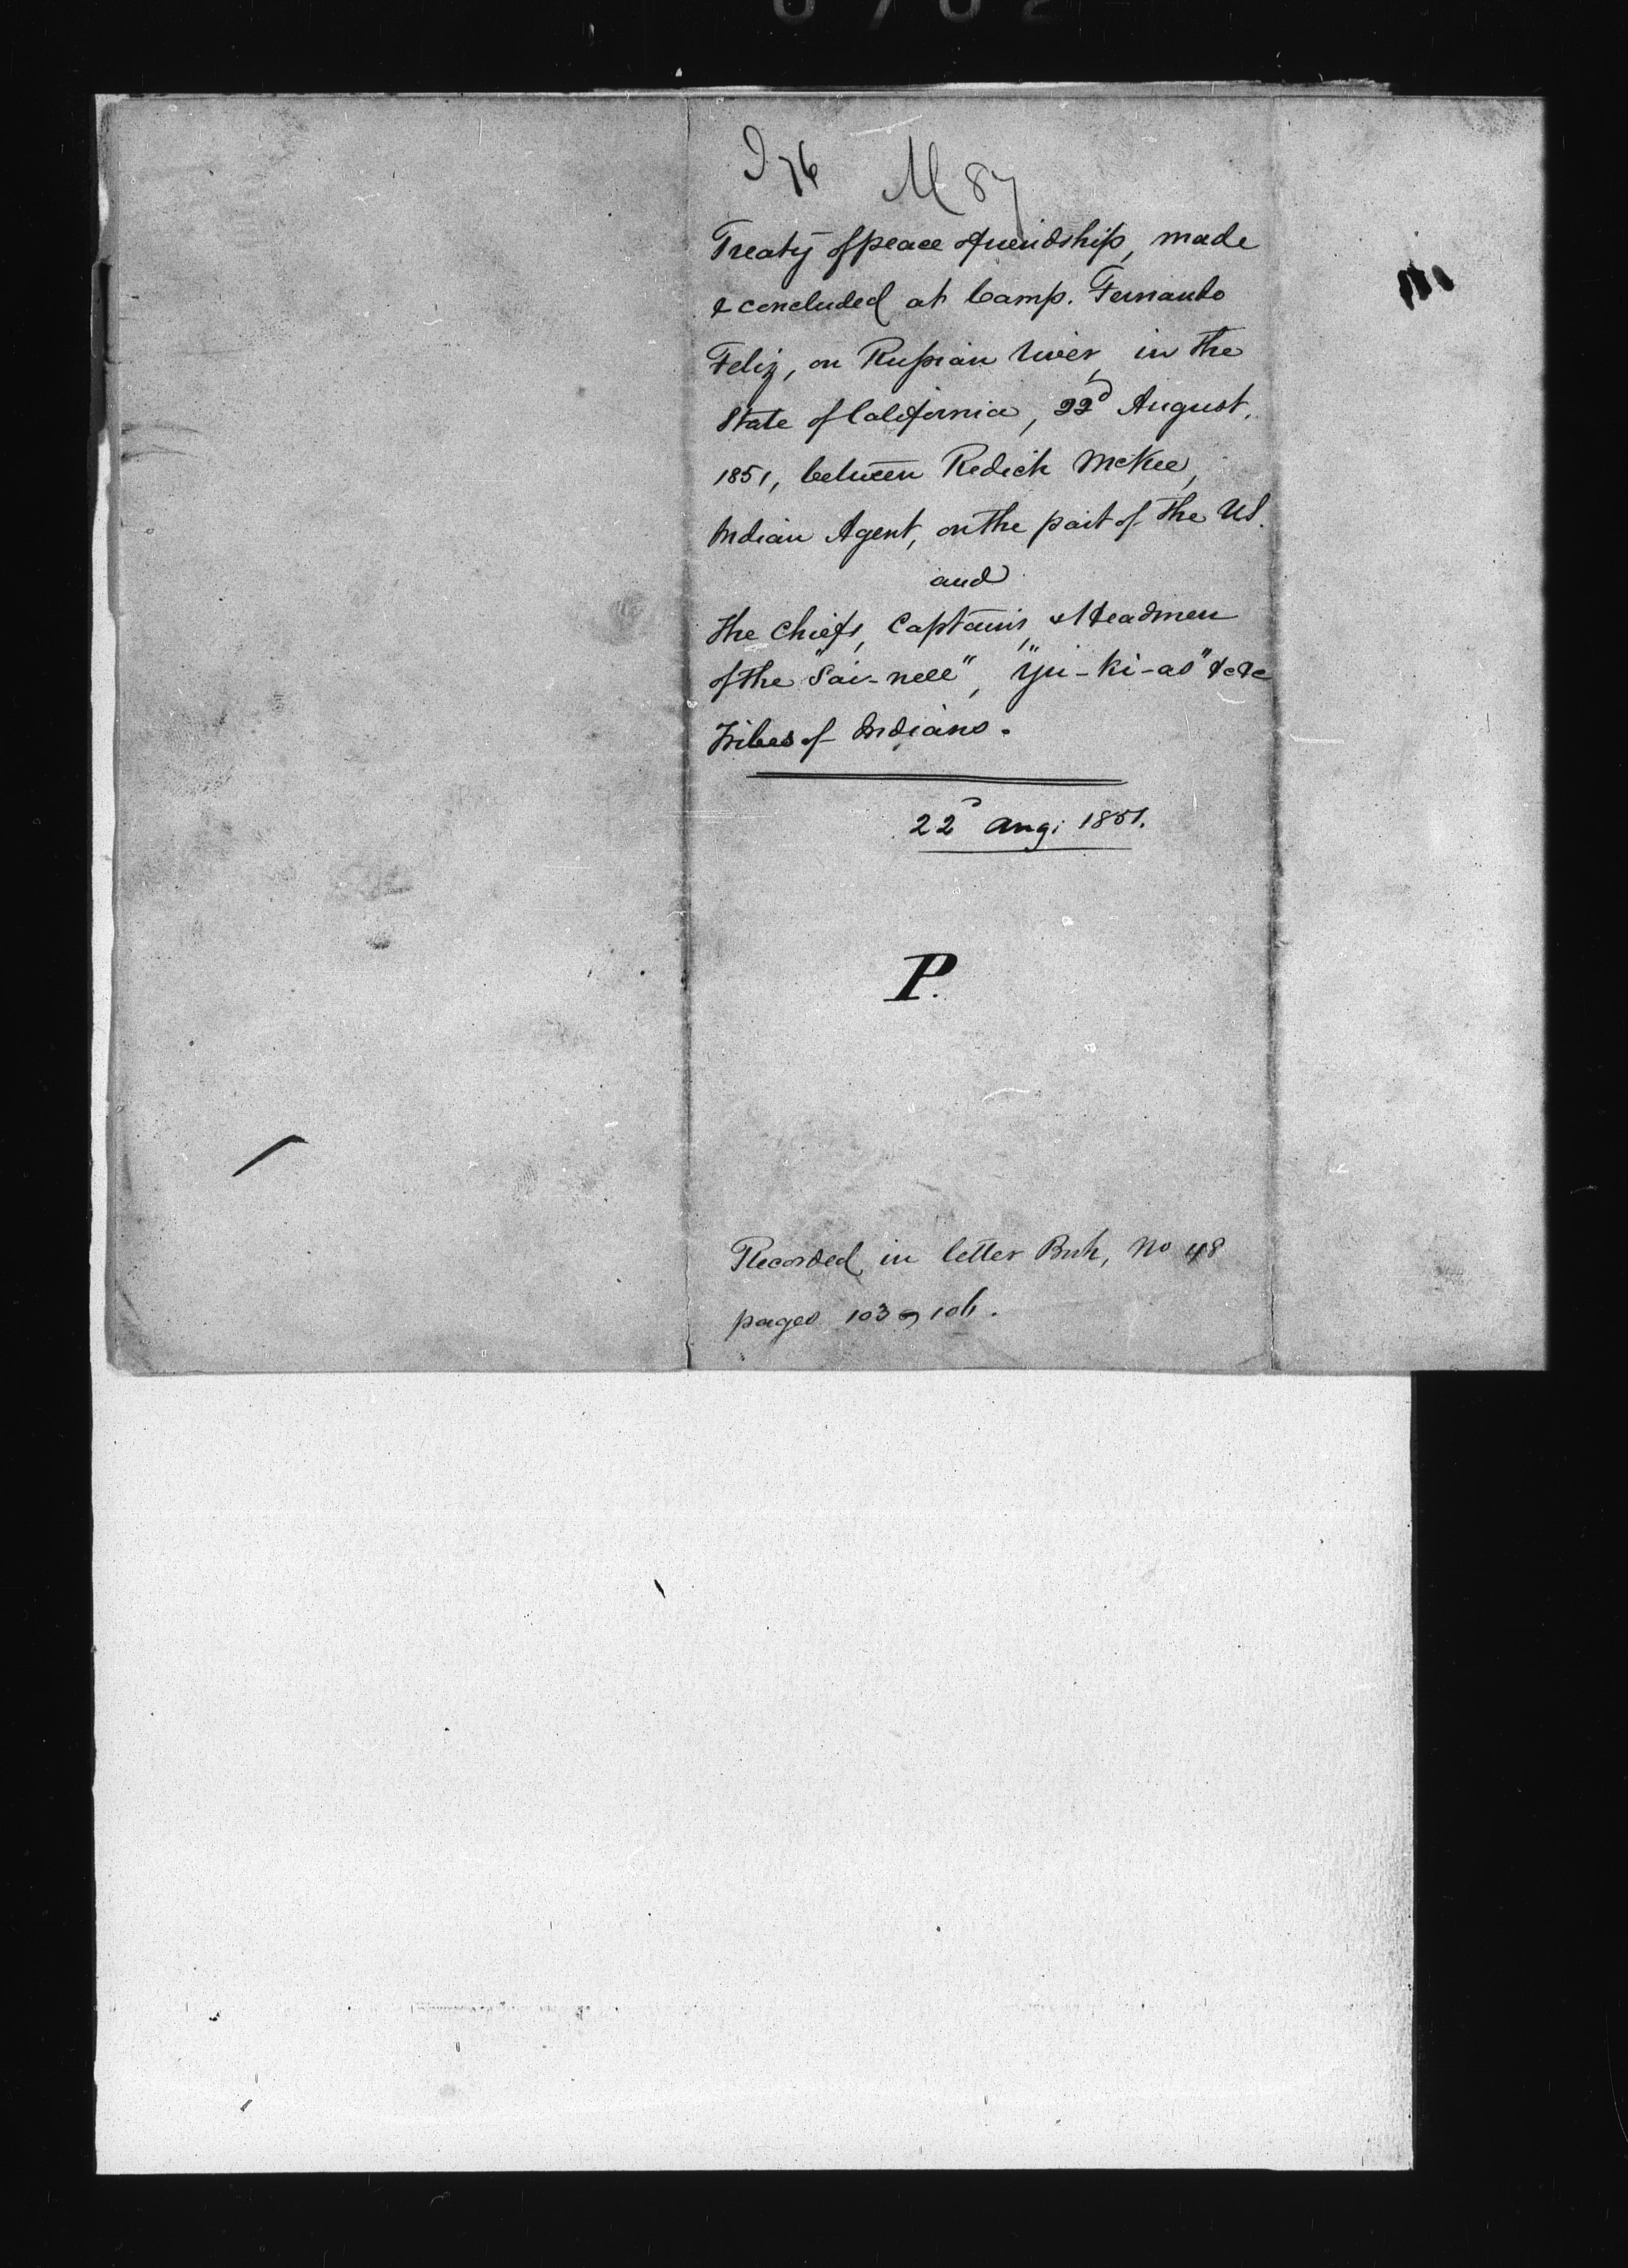 I 76 M 87
Treaty of peace & friendship, made
& concluded at Camp. Fernando
Feliz, on Russian river, in the
State of California, 22d August,
1851, between Redick McKee,
Indian Agent, on the part of the US.
and
the Chiefs, Captains, & Headmen
of the "Sai-nell", "Yu-ki-as" &c &c
Tribes of Indians.
22d Aug: 1851.
P.
Recorded in letter Book, No 48
pages 103 @